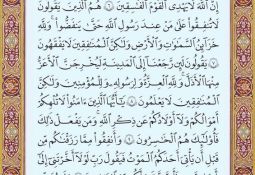 إِنَّ ٱللَّهَ لَا يَهْدِى ٱلْقَوْمَ ٱلْفَٰسِقِينَ ٦ هُمُ ٱلَّذِينَ يَقُولُونَ
لَا تُنفِقُوا۟ عَلَىٰ مَنْ عِندَ رَسُولِ ٱللَّهِ حَتَّىٰ يَنفَضُّوا۟ وَلِلَّهِ
خَزَآئِنُ ٱلسَّمَٰوَٰتِ وَٱلْأَرْضِ وَلَٰكِنَّ ٱلْمُنَٰفِقِينَ لَا يَفْقَهُونَ
٧ يَقُولُونَ لَئِن رَّجَعْنَآ إِلَى ٱلْمَدِينَةِ لَيُخْرِجَنَّ ٱلْأَعَزُّ
مِنْهَا ٱلْأَذَلَّ وَلِلَّهِ ٱلْعِزَّةُ وَلِرَسُولِهِۦ وَلِلْمُؤْمِنِينَ وَلَٰكِنَّ
ٱلْمُنَٰفِقِينَ لَا يَعْلَمُونَ ٨ يَٰٓأَيُّهَا ٱلَّذِينَ ءَامَنُوا۟ لَا تُلْهِكُمْ
أَمْوَٰلُكُمْ وَلَآ أَوْلَٰدُكُمْ عَن ذِكْرِ ٱللَّهِ وَمَن يَفْعَلْ ذَٰلِكَ
فَأُو۟لَٰٓئِكَ هُمُ ٱلْخَٰسِرُونَ ٩ وَأَنفِقُوا۟ مِن مَّا رَزَقْنَٰكُم مِّن
قَبْلِ أَن يَأْتِىَ أَحَدَكُمُ ٱلْمَوْتُ فَيَقُولَ رَبِّ لَوْلَآ أَخَّرْتَنِىٓ إِلَىٰٓ